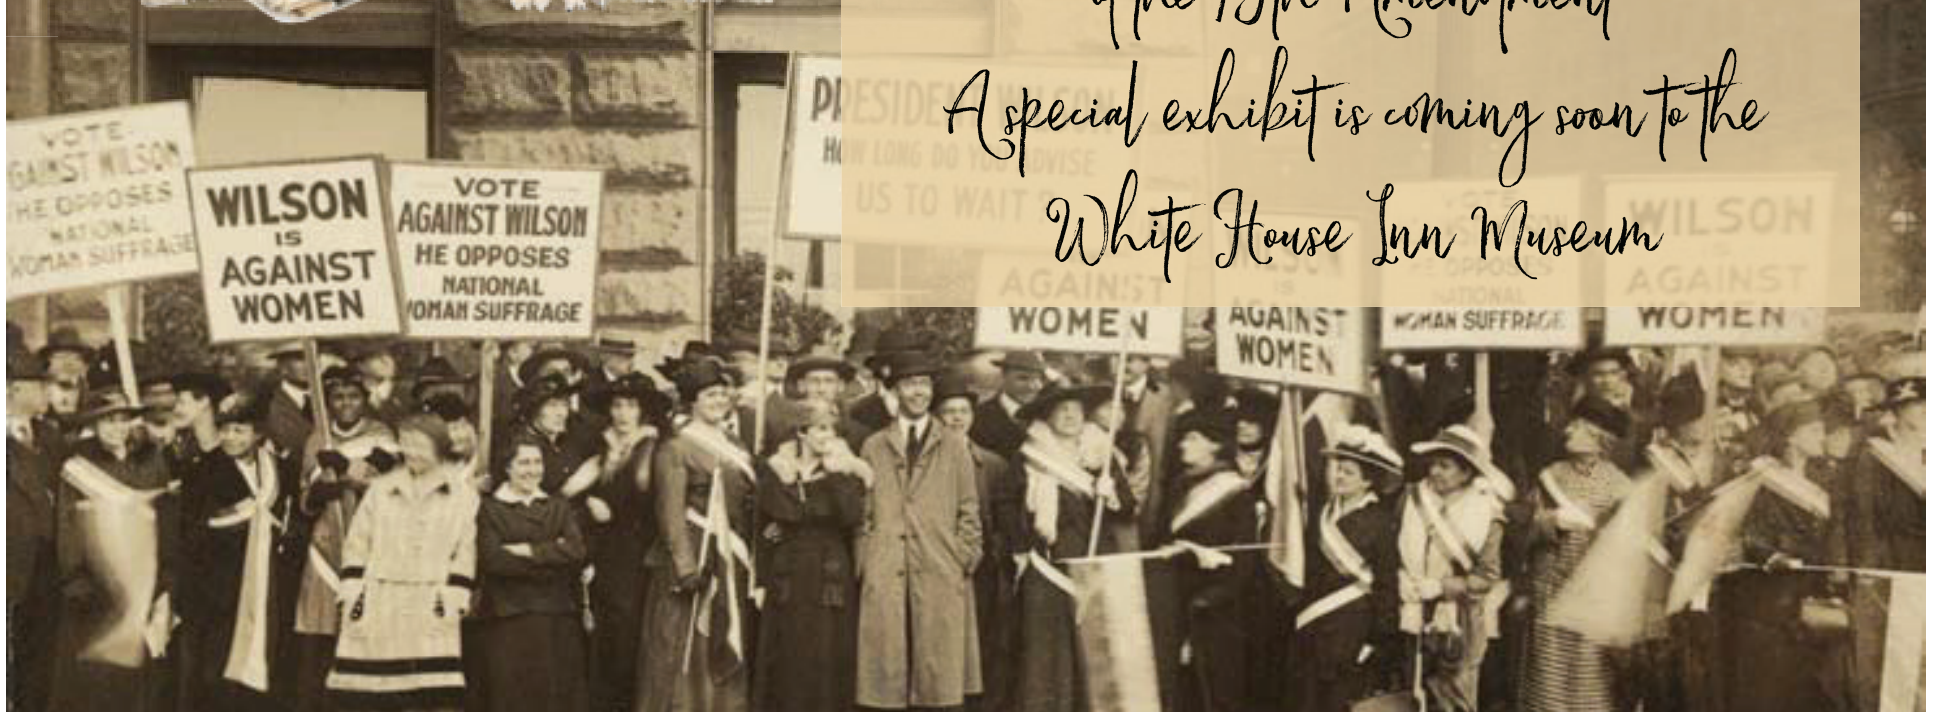 of the 19th Amendment
A special exhibit is coming soon to the
White House Inn Museum
VOTE
AGAINST WILSON
HE OPPOSES
NATIONAL
WOMAN SUFFRAGE
WILSON
IS
AGAINST
WOMEN
VOTE
AGAINST WILSON
HE OPPOSES
NATIONAL
WOMAN SUFFRAGE
PRESIDENT WILSON
HOW LONG DO YOU ADVISE
US TO WAIT?
AGAINST
WOMEN
WILSON
IS
AGAINST
WOMEN
VOTE
HE OPPOSES
NATIONAL
WOMAN SUFFRAGE
WILSON
IS
AGAINST
WOMEN